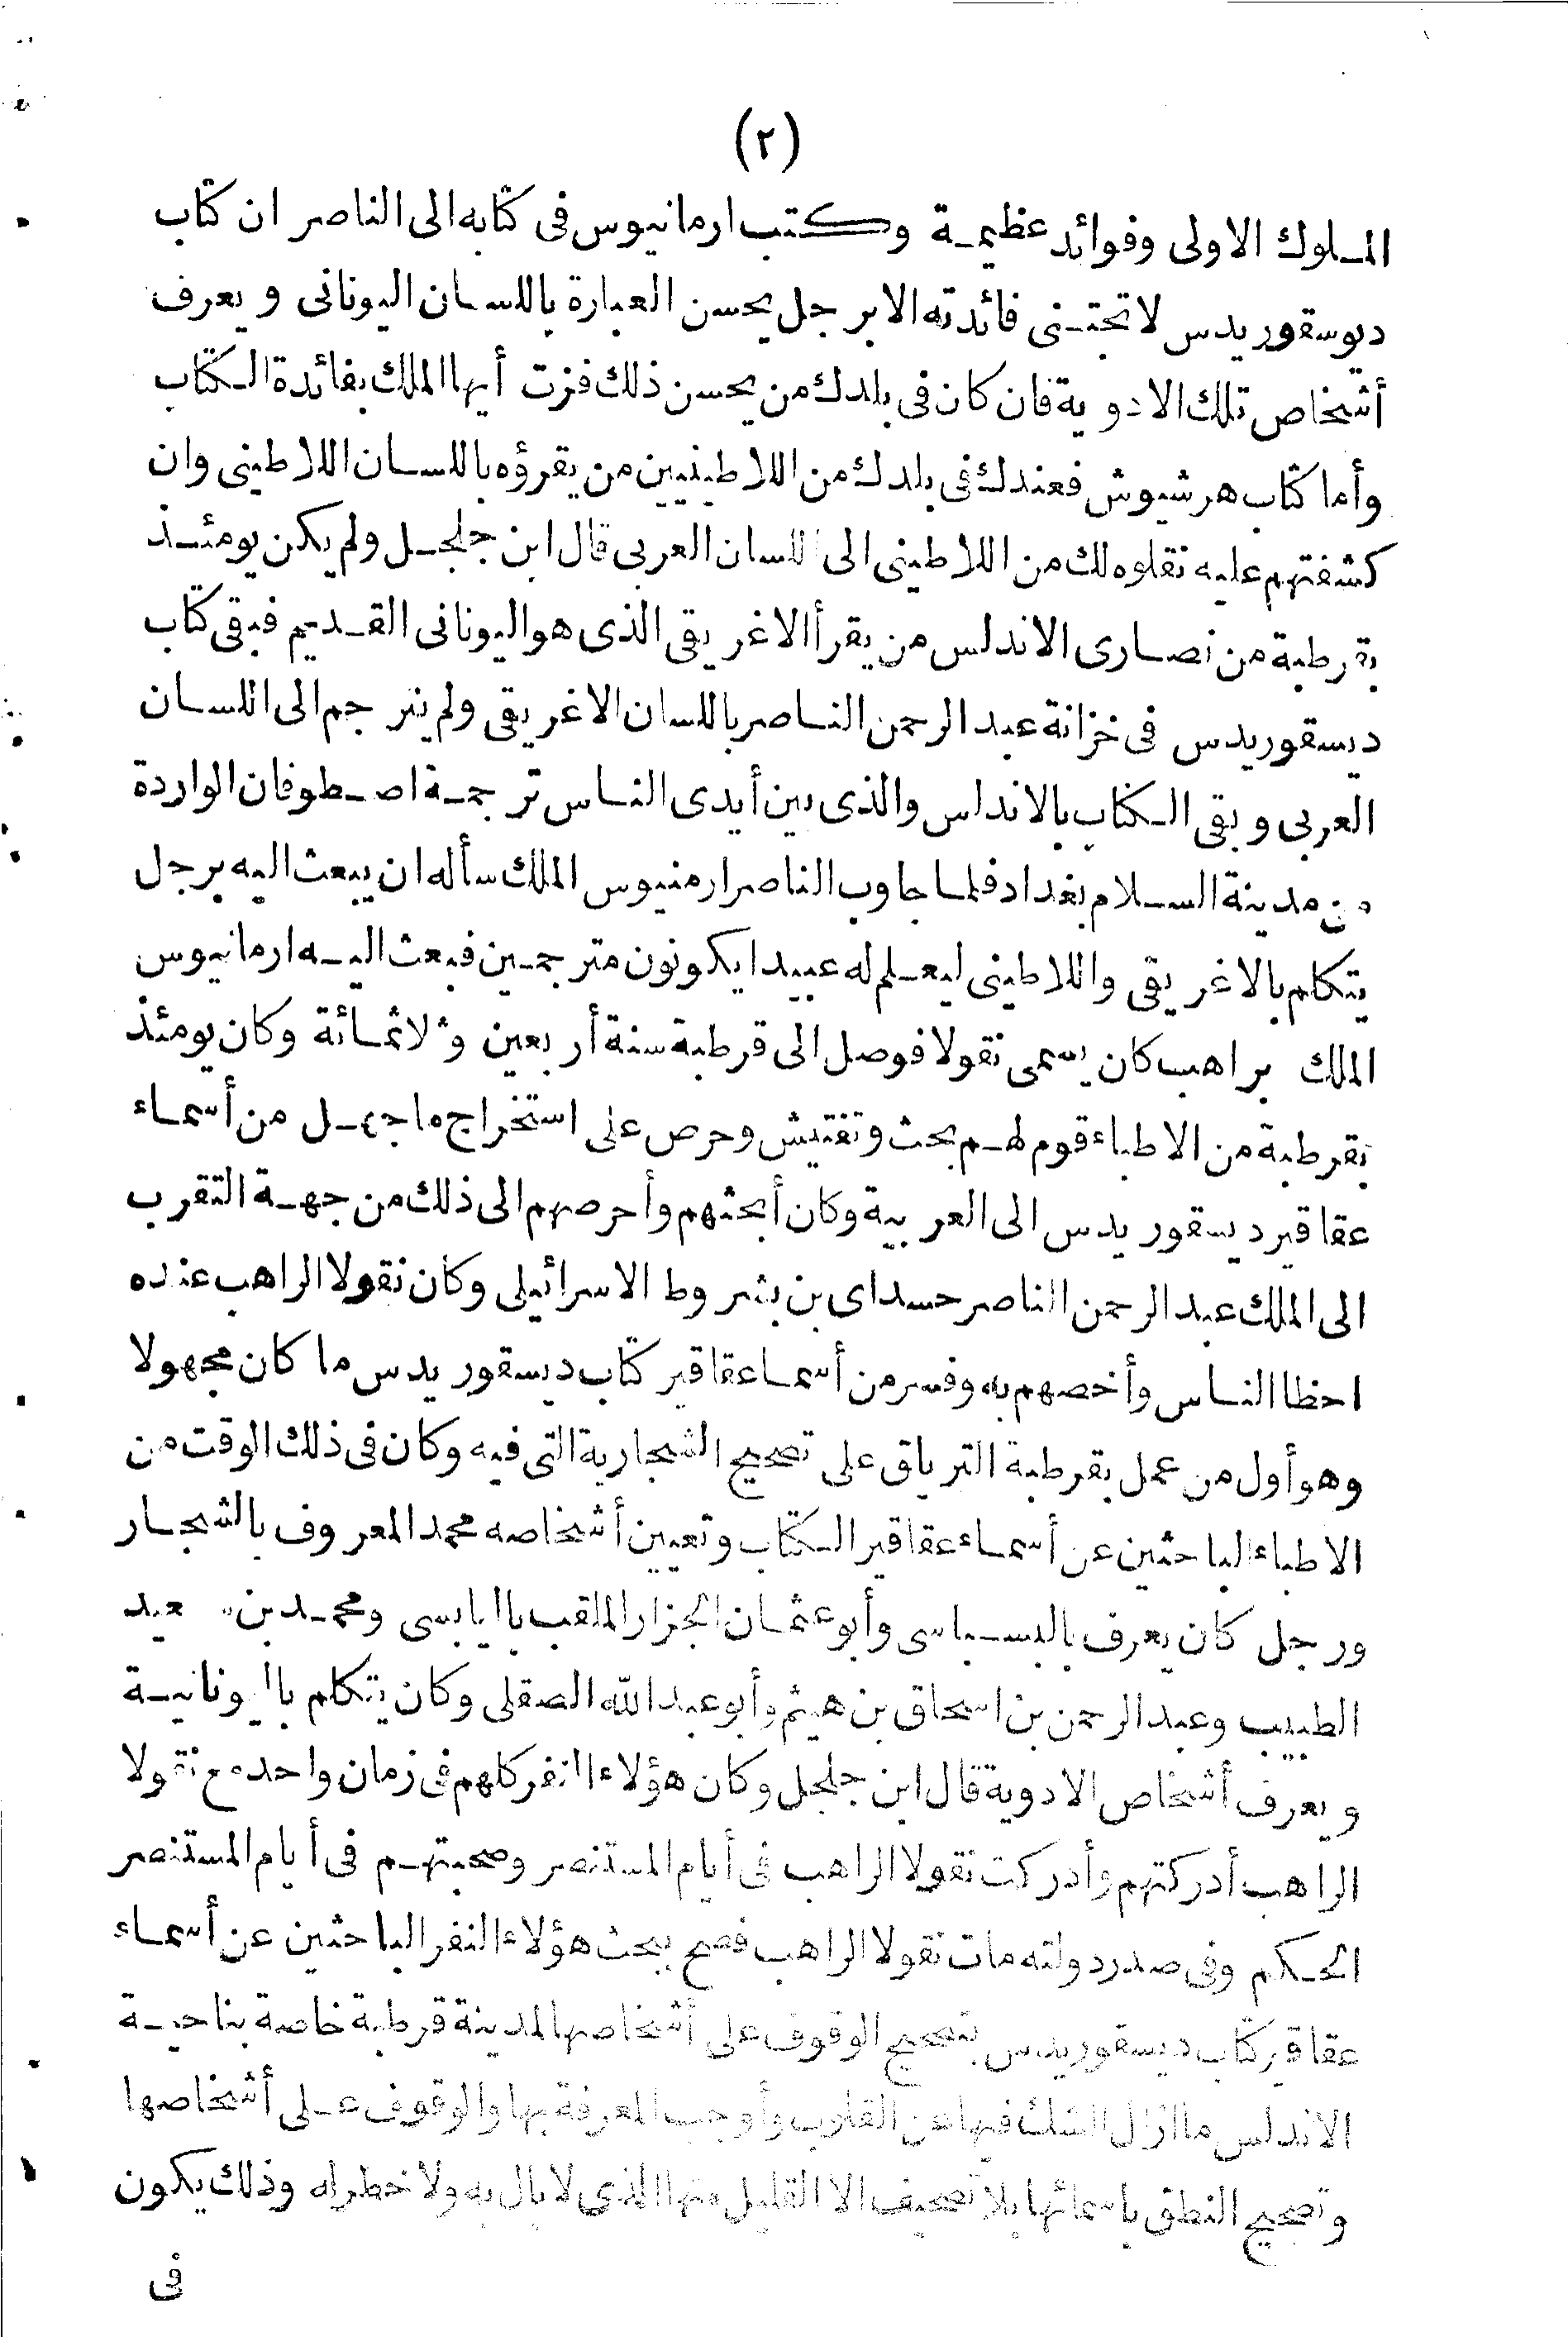 (٢)
الملوك الاولى وفوائد عظيمة وكتب ارمانيوس فى كتابه الى الناصر ان كتاب
ديوسقوريدس لا تجتنى فائدته الا برجل يحسن العبارة باللسان اليونانى ويعرف
أشخاص تلك الادوية فان كان فى بلدك من يحسن ذلك فزت أيها الملك بفائدة الكتاب
وأما كتاب هرشيوش فعندك فى بلدك من اللاطينيين من يقرؤه باللسان اللاطينى وان
كشفتهم عليه نقلوه لك من اللاطينى الى اللسان العربى قال ابن جلجل ولم يكن يومئذ
بقرطبة من نصارى الاندلس من يقرأ الاغريقى الذى هو اليونانى القديم فبقى كتاب
ديسقوريدس فى خزانة عبد الرحمن الناصر باللسان الاغريقى ولم يترجم الى اللسان
العربى وبقى الكتاب بالاندلس والذى بين أيدى الناس ترجمة اصطوفان الواردة
من مدينة السلام بغداد فلما جاوب الناصر ارمنيوس الملك سأله ان يبعث اليه برجل
يتكلم بالاغريقى واللاطينى ليعلم له عبيدا يكونون مترجمين فبعث اليه ارمانيوس
الملك براهب كان يسمى نقولا فوصل الى قرطبة سنة أربعين وثلاثمائة وكان يومئذ
بقرطبة من الاطباء قوم لهم بحث وتفتيش وحرص على استخراج ما جهل من أسماء
عقاقير ديسقوريدس الى العربية وكان أبحثهم وأحرصهم الى ذلك من جهة التقرب
الى الملك عبد الرحمن الناصر حسداى بن بشروط الاسرائيلى وكان نقولا الراهب عنده
احظا الناس وأخصهم به وفسر من أسما عقاقير كتاب ديسقوريدس ما كان مجهولا
وهو أول من عمل بقرطبة الترياق على تصحيح الشجارية التى فيه وكان فى ذلك الوقت من
الاطباء الباحثين عن أسماء عقاقير الكتاب وتعيين أشخاصه محمد المعروف بالشجار
ورجل كان يعرف بالبسباسى وأبو عثمان الجزار الملقب باليابسى ومحمد بن سعيد
الطبيب وعبد الرحمن بن اسحاق بن هيثم وأبو عبد الله الصقلى وكان يتكلم باليونانية
ويعرف أشخاص الادوية قال ابن جلجل وكان هؤلاء النفر كلهم فى زمان واحد مع نقولا
الراهب أدركتهم وأدركت نقولا الراهب فى أيام المستنصر وصحبتهم فى أيام المستنصر
الحكم وفى صدر دولته مات نقولا الراهب فصح ببحث هؤلاء النفر الباحثين عن أسماء
عقاقير كتاب ديسقوريدس بتصحيح الوقوف على أشخاصها لمدينة قرطبة خاصة بناحية
الاندلس ما ازال الشك فيها عن القلوب وأوجب المعرفة بها والوقوف على أشخاصها
وتصحيح النطق باسمائها بلا تصحيف الا القليل منها الذى لا بال به ولا خطر له وذلك يكون
فى